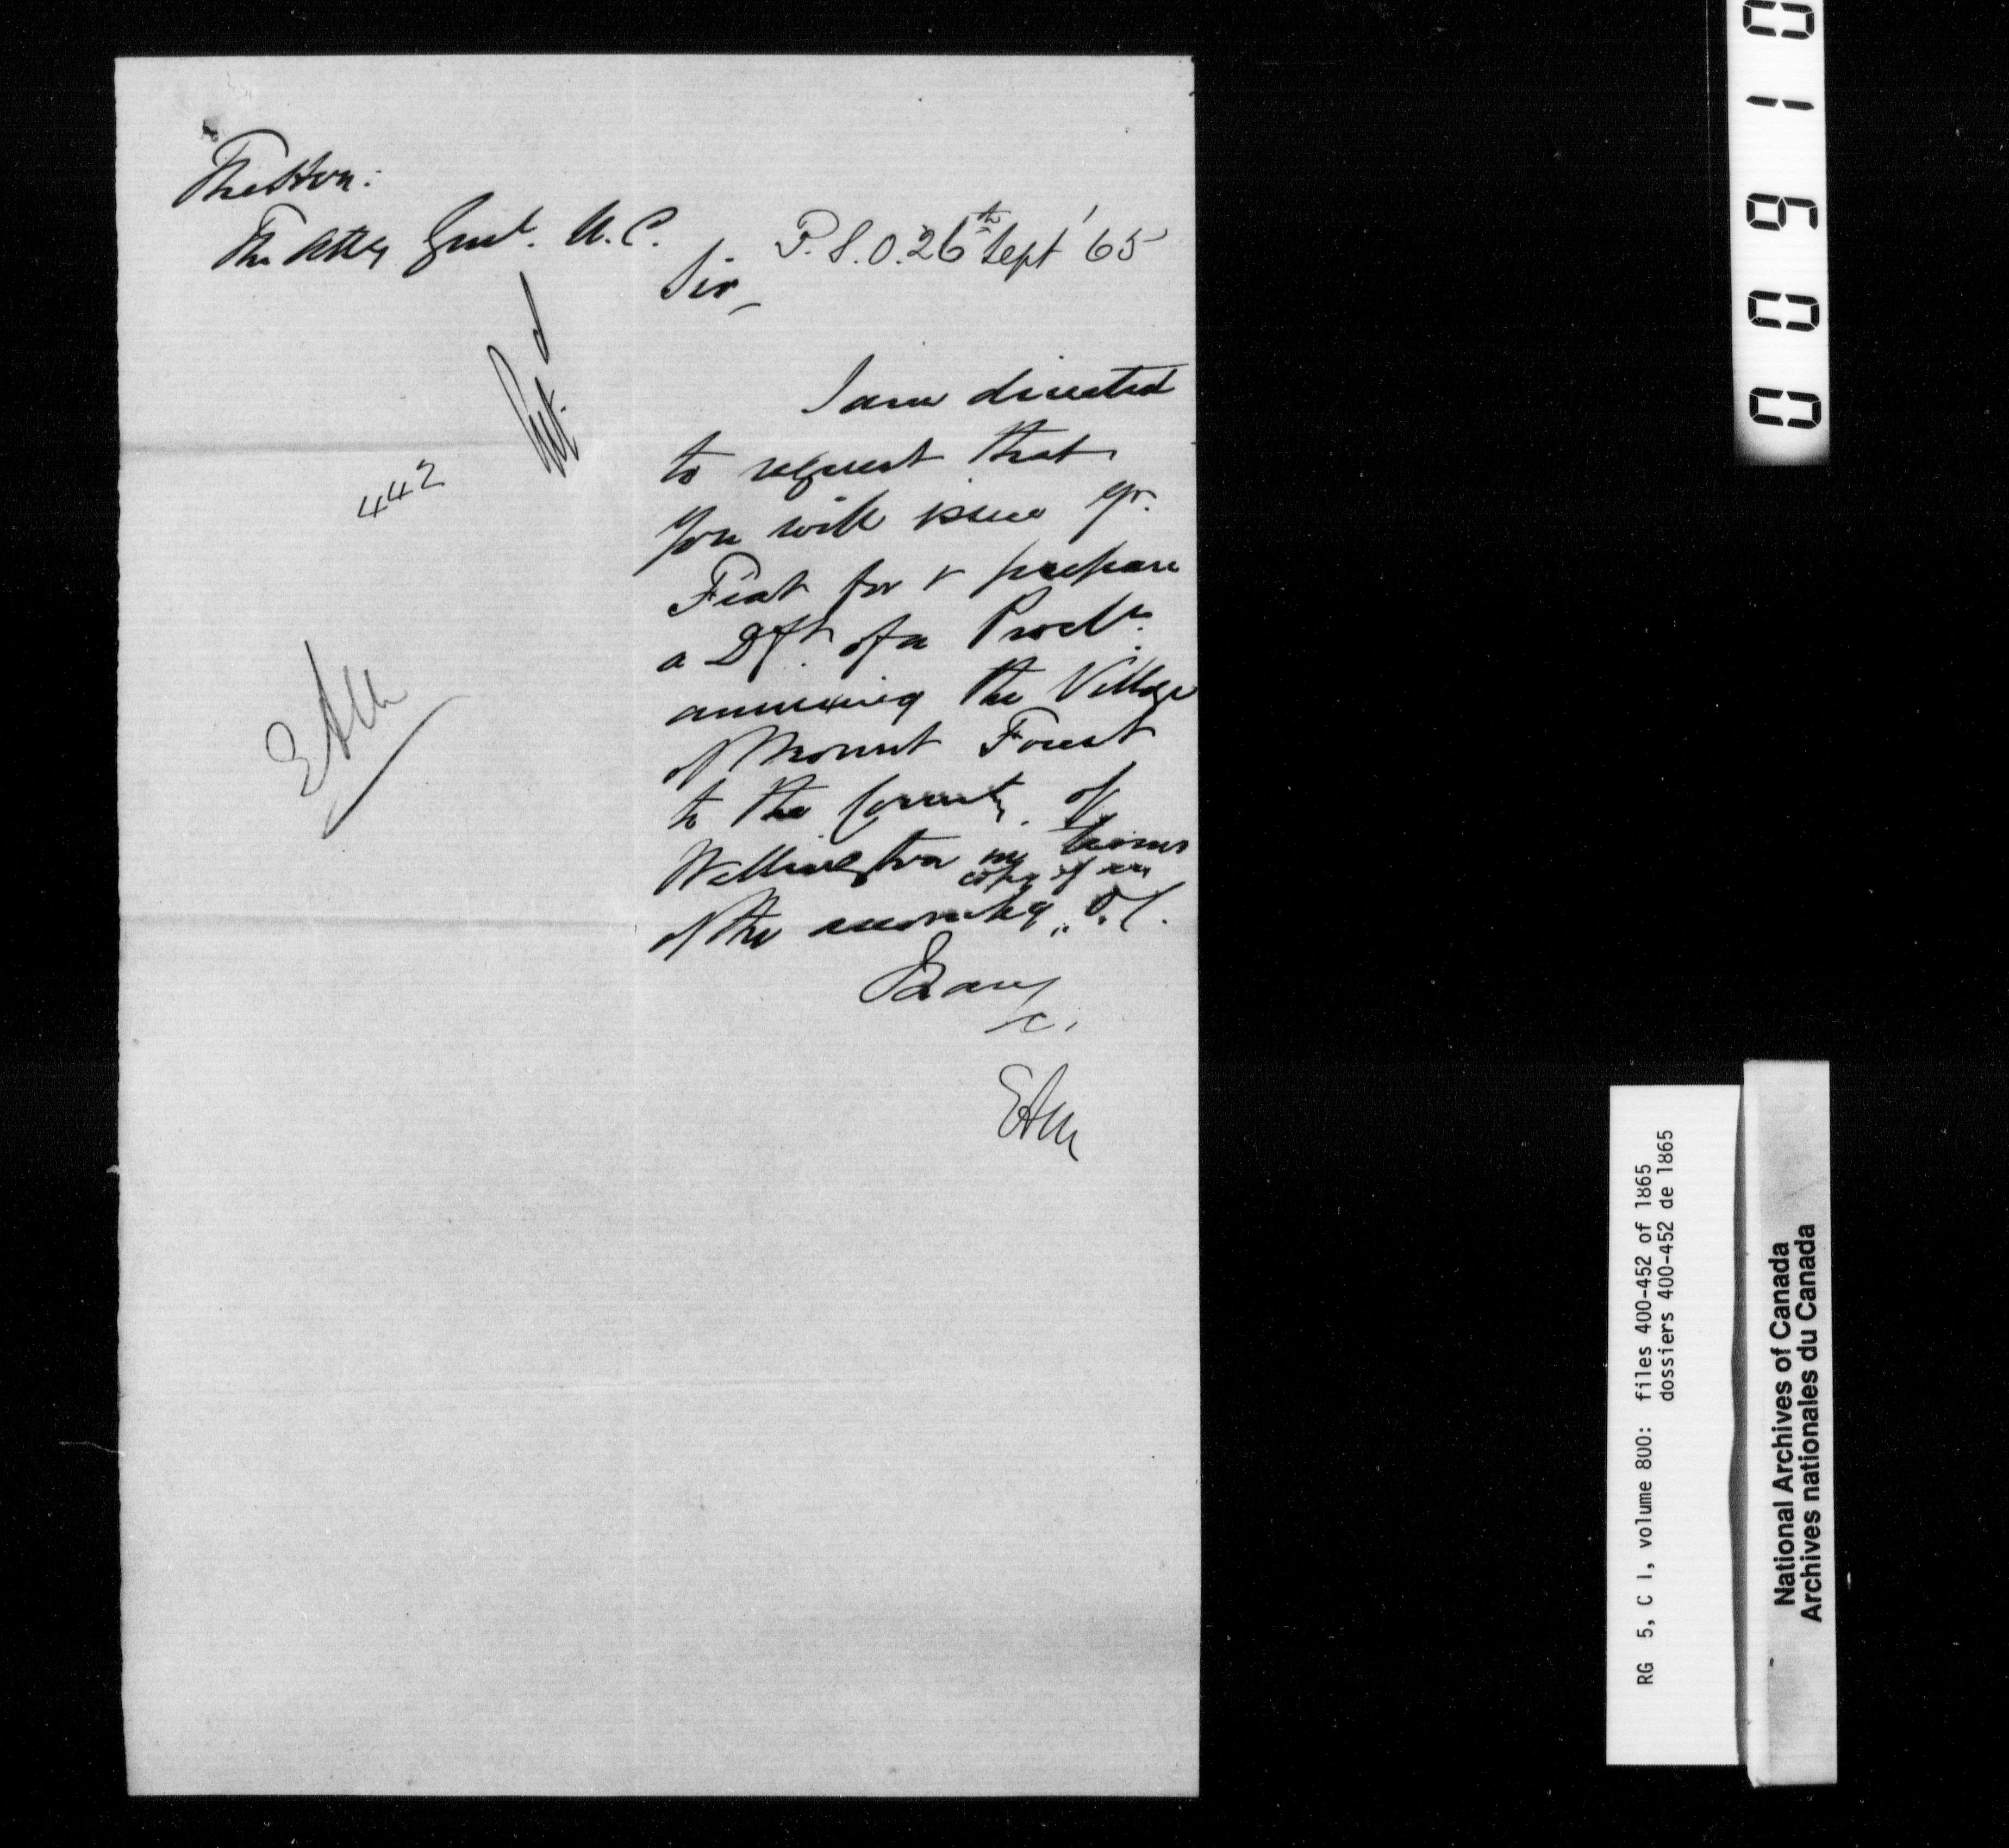 The Hon:
The Atty Genl. U.C.
P.S.O. 26th Sept '65
Sir,
Ent.d
442
I am directed
to request that
you will issue yr.
Fiat for & prepare
a Dft. of a Procln.
annexing the Village
of Mount Forest
to the County of
Wellington in terms
copy of an
of the accompg. O.C.
I have
&c.
EAM
EAM
00910
RG 5, C 1, volume 800: files 400-452 of 1865
dossiers 400-452 de 1865
National Archives of Canada
Archives nationales du Canada